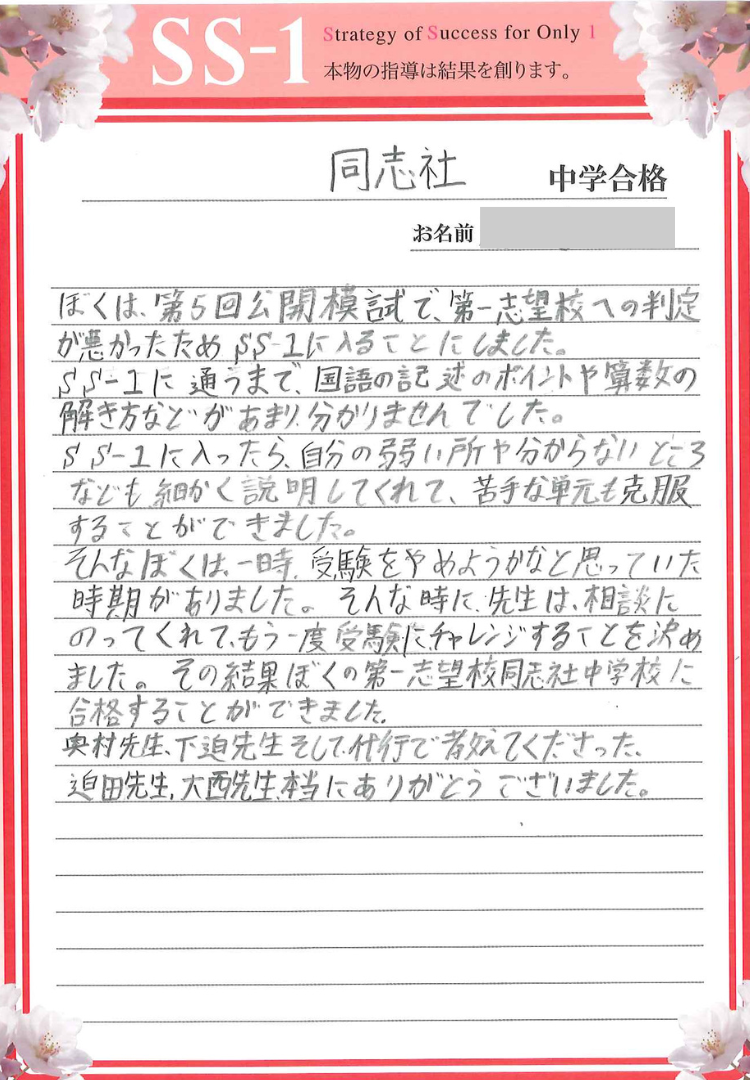 SS-1
Strategy of Success for Only 1
本物の指導は結果を創ります。
同志社 中学合格
お名前
ぼくは、第5回公開模試で、第一志望校への判定
が悪かったためSS-1に入ることにしました。
SS-1に通うまで、国語の記述のポイントや算数の
解き方などがあまり、分かりませんでした。
SS-1に入ったら、自分の弱い所や分からないところ
なども細かく説明してくれて、苦手な単元も克服
することができました。
そんなぼくは、一時、受験をやめようかなと思っていた
時期がありました。そんな時に、先生は、相談に
のってくれて、もう一度受験に、チャレンジすることを決め
ました。その結果ぼくの第一志望校同志社中学校に
合格することができました。
奥村先生、下迫先生そして、代行で教えてくださった、
迫田先生、大西先生、本当にありがとうございました。